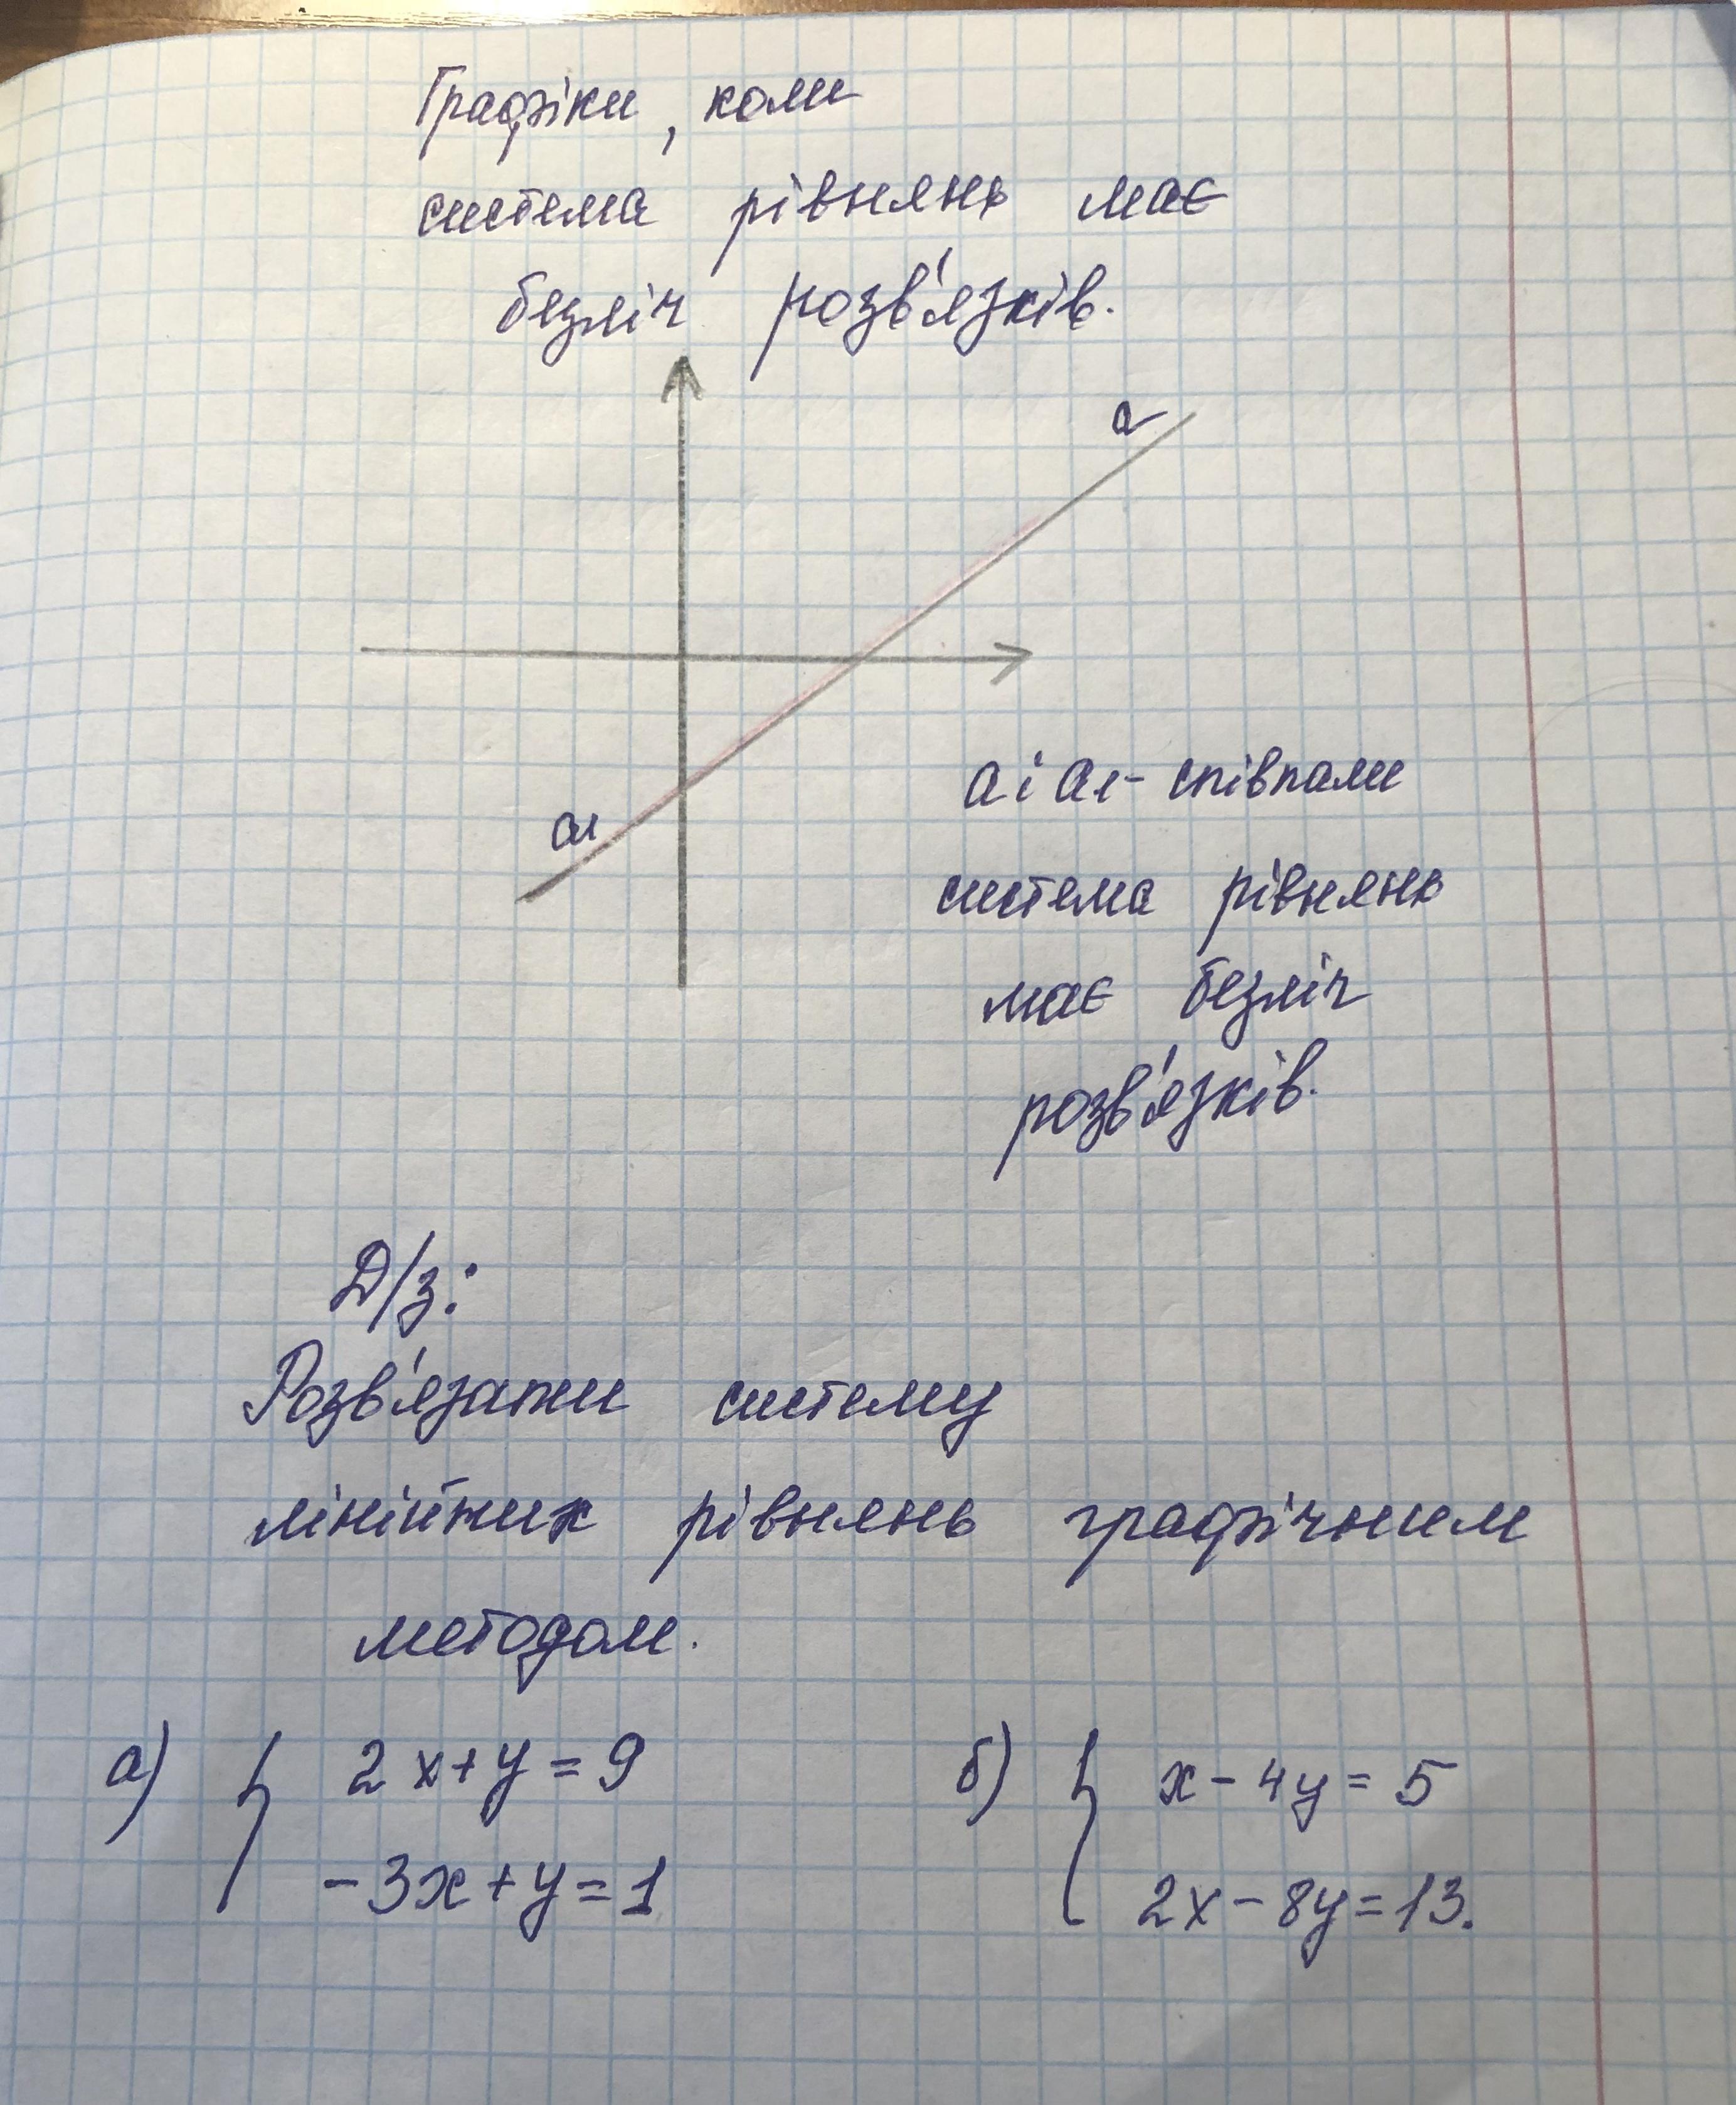 Графіки, коли
система рівнянь має
безліч розв'язків.
a
a1
a і a1 - співпали
система рівнянь
має безліч
розв'язків.
Д/з:
Розв'язати систему
лінійних рівнянь графічним
методом.
а) { 2x + y = 9
-3x + y = 1
б) { x - 4y = 5
2x - 8y = 13.